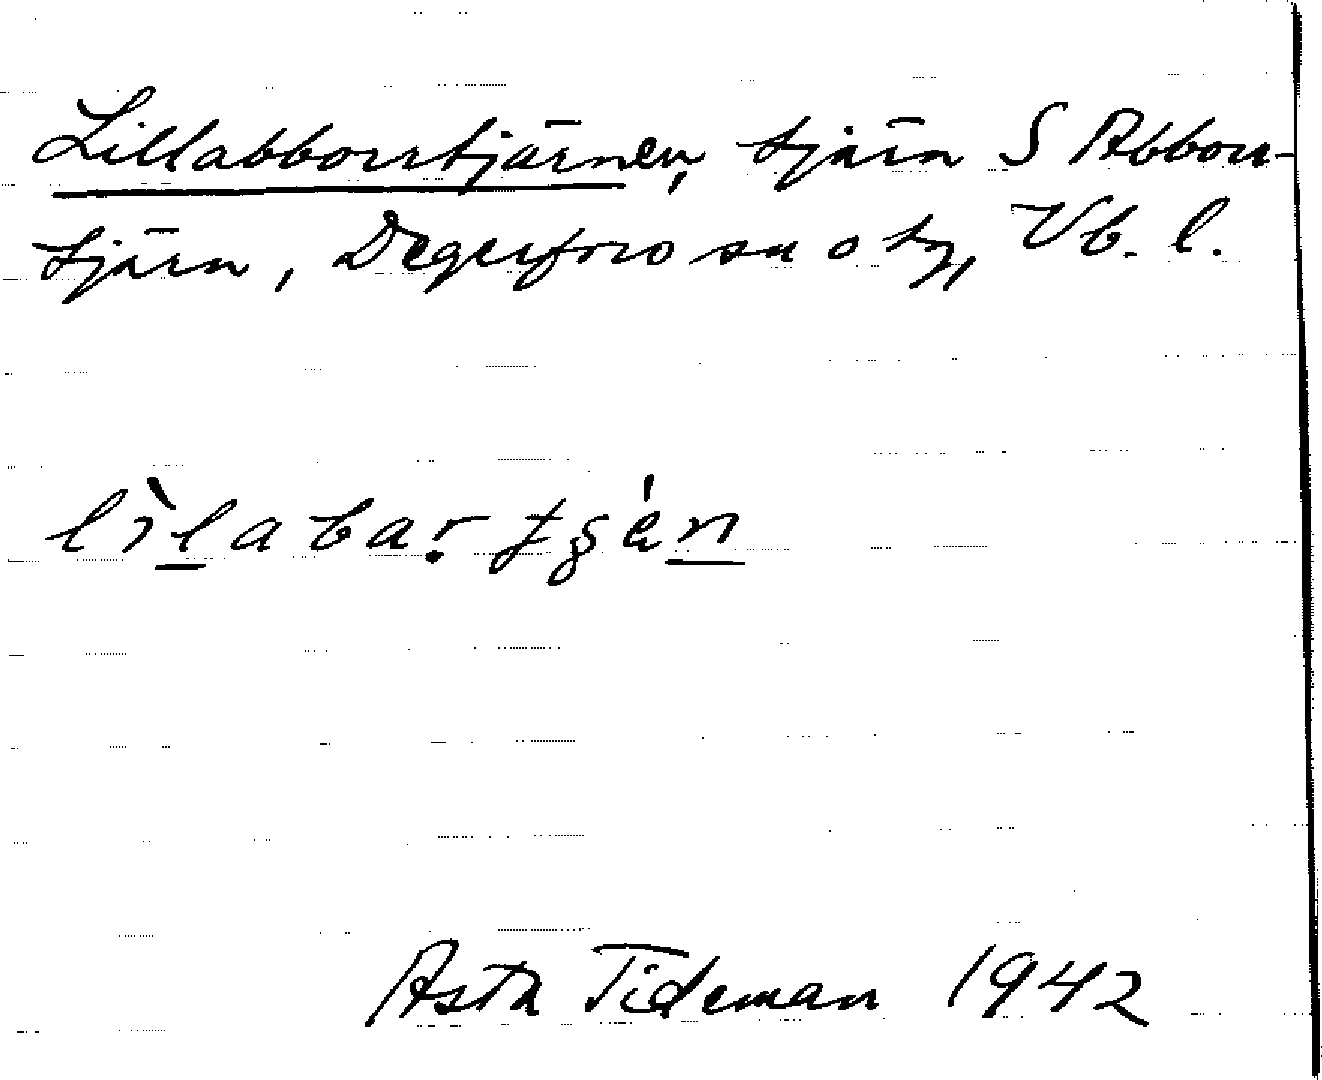 Lillabborrtjärnen, tjärn S Abborr-
tjärn, Degerfors sn o tg, Vb. l.
Asta Tideman 1942